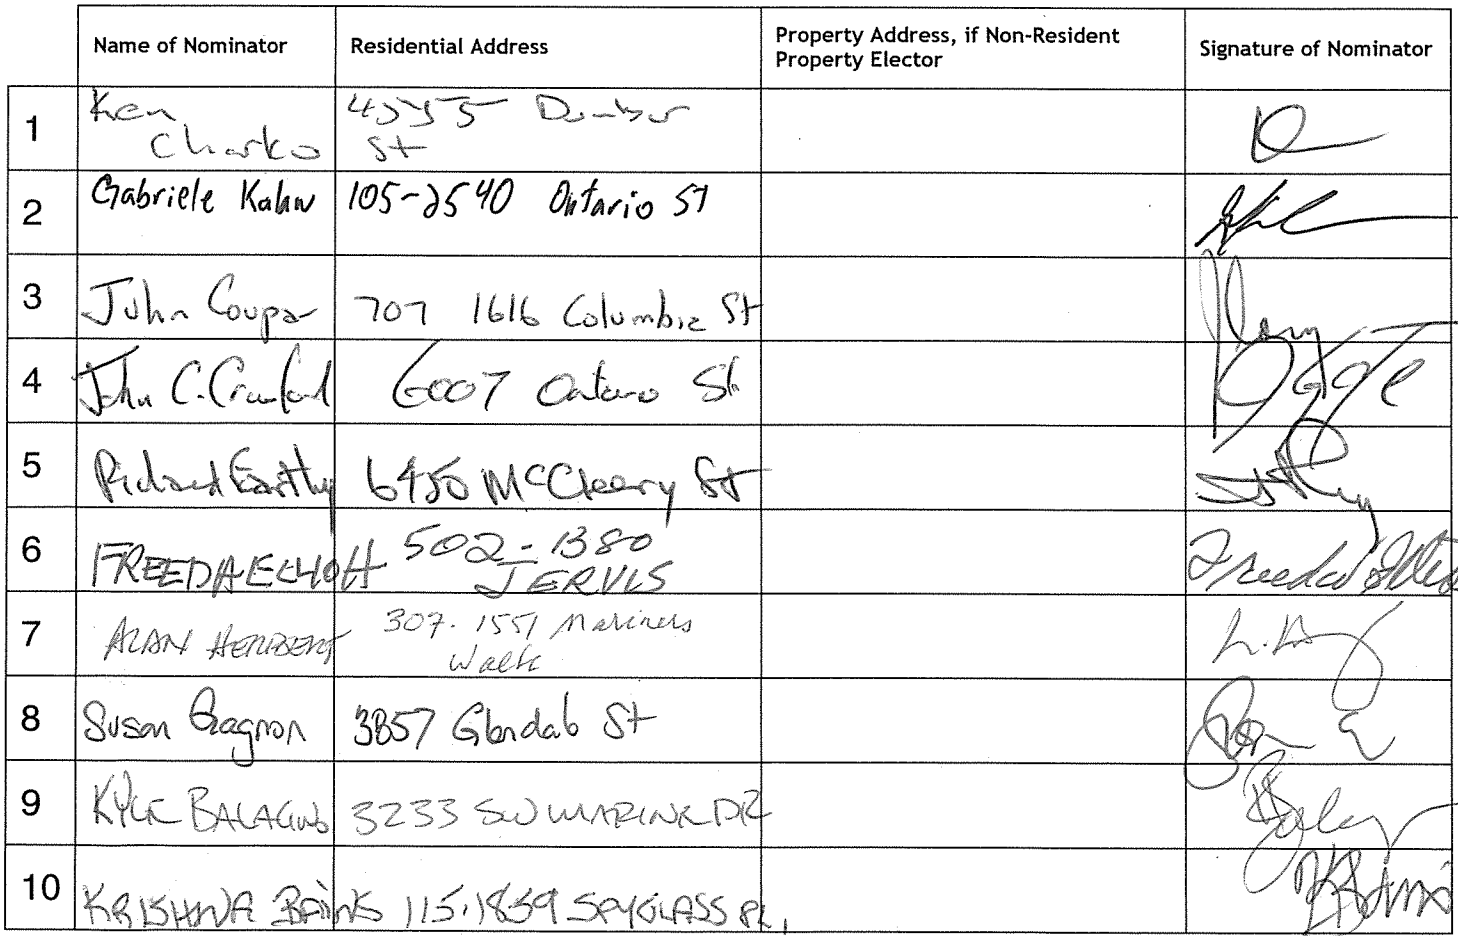 Name of Nominator Residential Address Property Address, if Non-Resident Property Elector Signature of Nominator
1 Ken Charko 4555 Dunbar St
2 Gabriele Kahn 105-2540 Ontario ST
3 John Coupar 707 1616 Columbia St
4 John C. Crawford 6007 Ontario St
5 Richard 6450 McCleery St
6 FREEDA ELLIOTT 502-1380 JERVIS Freeda
7 ALAN HERBERT 307-1551 Mariners Walk
8 Susan Gagnon 3857 Glendale St
9 KYLE 3233 SW MARINE DR
10 KRISHNA BAINS 115-1859 SPYGLASS PL.